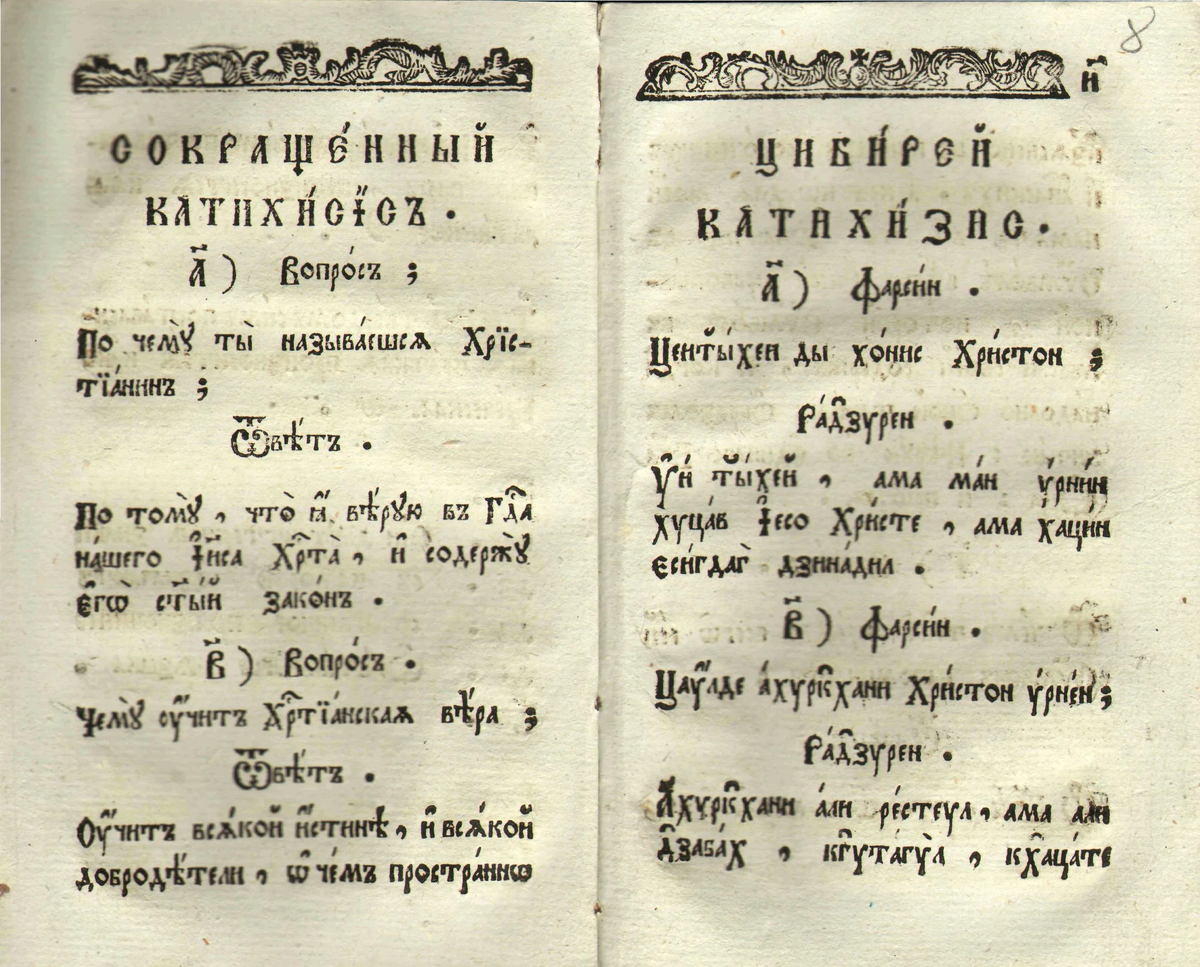 СОКРАЩЕ́ННЫЙ
КАТИХИ́СІСЪ .
а҃ ) Вопро́съ ;
По чемꙋ̀ ты̀ называ́ешсѧ Хрїс-
тїа́нинъ ;
Ѿвѣ́тъ .
По томꙋ̀ , что̀ ѩ҆ вѣ́рꙋю въ Гдⷭ҇а
на́шего І҆и҃са Хрⷭ҇та̀ , и҆ содержꙋ̀
є҆гѡ̀ ст҃ы́й зако́нъ .
в҃ ) Вопро́съ .
Чемꙋ̀ ᲂу҆́читъ Хрⷭ҇тїа́нскаѧ вѣ́ра ;
Ѿвѣ́тъ .
Ѹ҆́читъ всѧ́кой и҆́стинѣ , и҆ всѧ́кой
добродѣ́тели , ѡ҆ че́мъ простра́ннѡ
8
и҃
ЦИБИ́РЕЙ
КАТИХИ́ЗИС .
а҃ ) Фарси́н .
Центⷭ҇ы́хеи ды хо́нис Хри́стон ;
Ра́дⷥзурен .
У҆и́ тⷭ҇ы́хей , ама ма́н у҆рни́н
хуца́в І҆есо Хри́сте , ама ха́цин
єси́гдаг҆ дзина́дил .
в҃ ) Фарси́н .
Цау҆́лде а́хурк҆хани Хри́стон у҆рне́н ;
Ра́дⷥзурен .
А҆́хурк҆хани а́ли ре́стеул , ама али
д҆заба́х , кг҆ута́гу̀л , кх҆аца́те